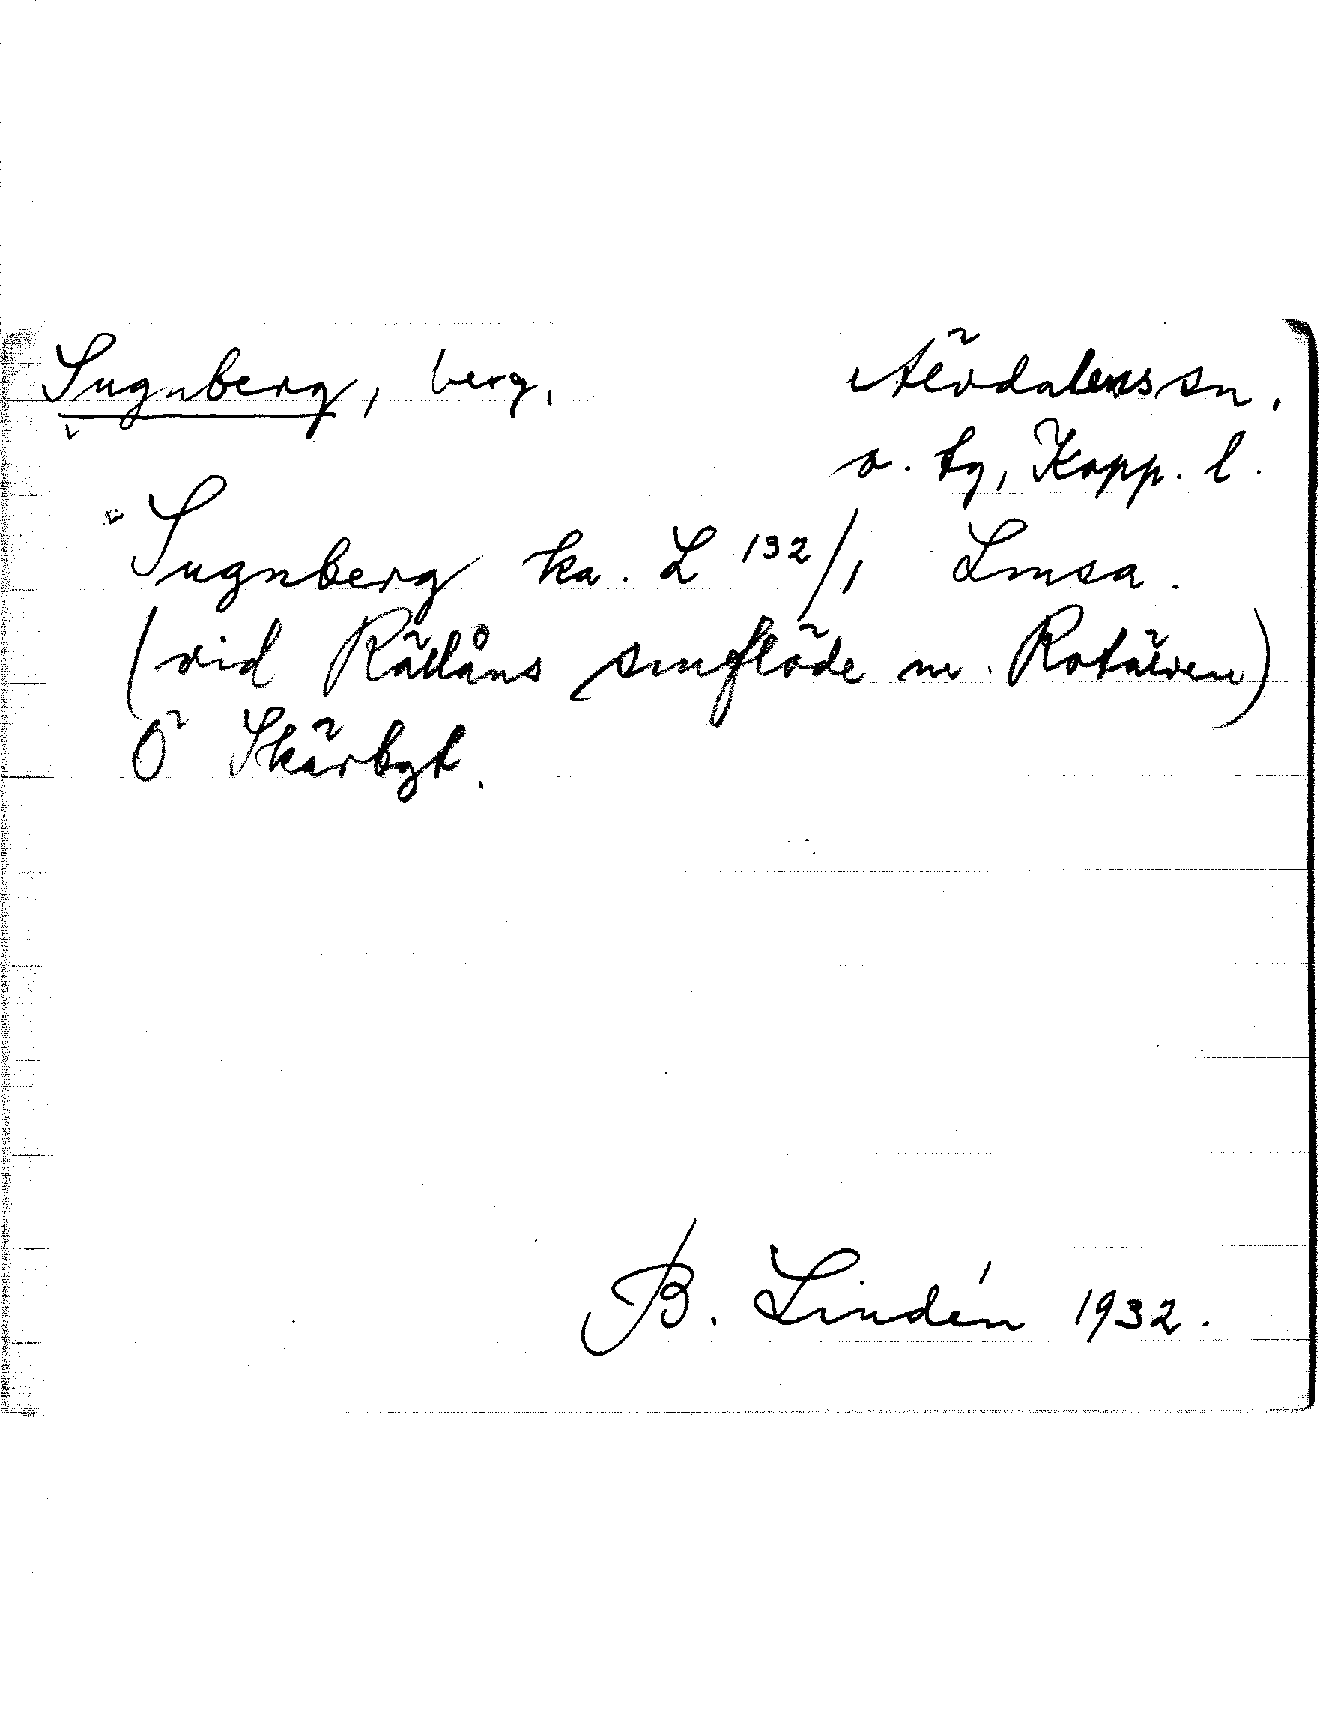 Sugnberg, berg, Älvdalens sn,
o. tg, Kopp. l.
Sugnberg ka. L 132/1 Lmsa.
(vid Rällåns smflöde m. Rotälven)
Ö Skärbgt.
B. Lindén 1932.